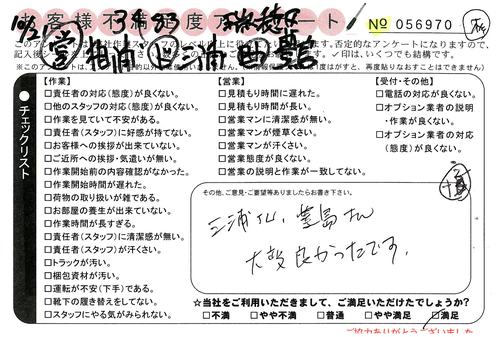 お客様不満足度アンケート
№ 056970
【作業】
□責任者の対応(態度)が良くない。
□他のスタッフの対応(態度)が良くない。
□作業を見ていて不安がある。
□責任者(スタッフ)に好感が持てない。
□お客様への挨拶が出来ていない。
□ご近所への挨拶・気遣いが無い。
□作業開始前の内容確認がなかった。
□作業開始時間が遅れた。
□荷物の取り扱いが雑である。
□お部屋の養生が出来ていない。
□作業時間が長すぎる。
□責任者(スタッフ)に清潔感が無い。
□責任者(スタッフ)が汗くさい。
□トラックが汚い。
□梱包資材が汚い。
□運転が不安(下手)である。
□靴下の履き替えをしてない。
□スタッフにやる気がみられない。
【営業】
□見積もり時間に遅れた。
□見積もり時間が長い。
□営業マンに清潔感が無い。
□営業マンが煙草くさい。
□営業マンが汗くさい。
□営業態度が良くない。
□営業の説明と作業が一致してない。
【受付・その他】
□電話の対応が良くない。
□オプション業者の説明
・作業が良くない。
□オプション業者の対応
(態度)が良くない。
チェックリスト
その他、ご意見・ご要望等ありましたらお書き下さい。
三浦さん、豊島さん
大変良かったです。
☆当社をご利用いただきまして、ご満足いただけたでしょうか?
□不満 □やや不満 □普通 □やや満足 □満足
ご協力ありがとうございました